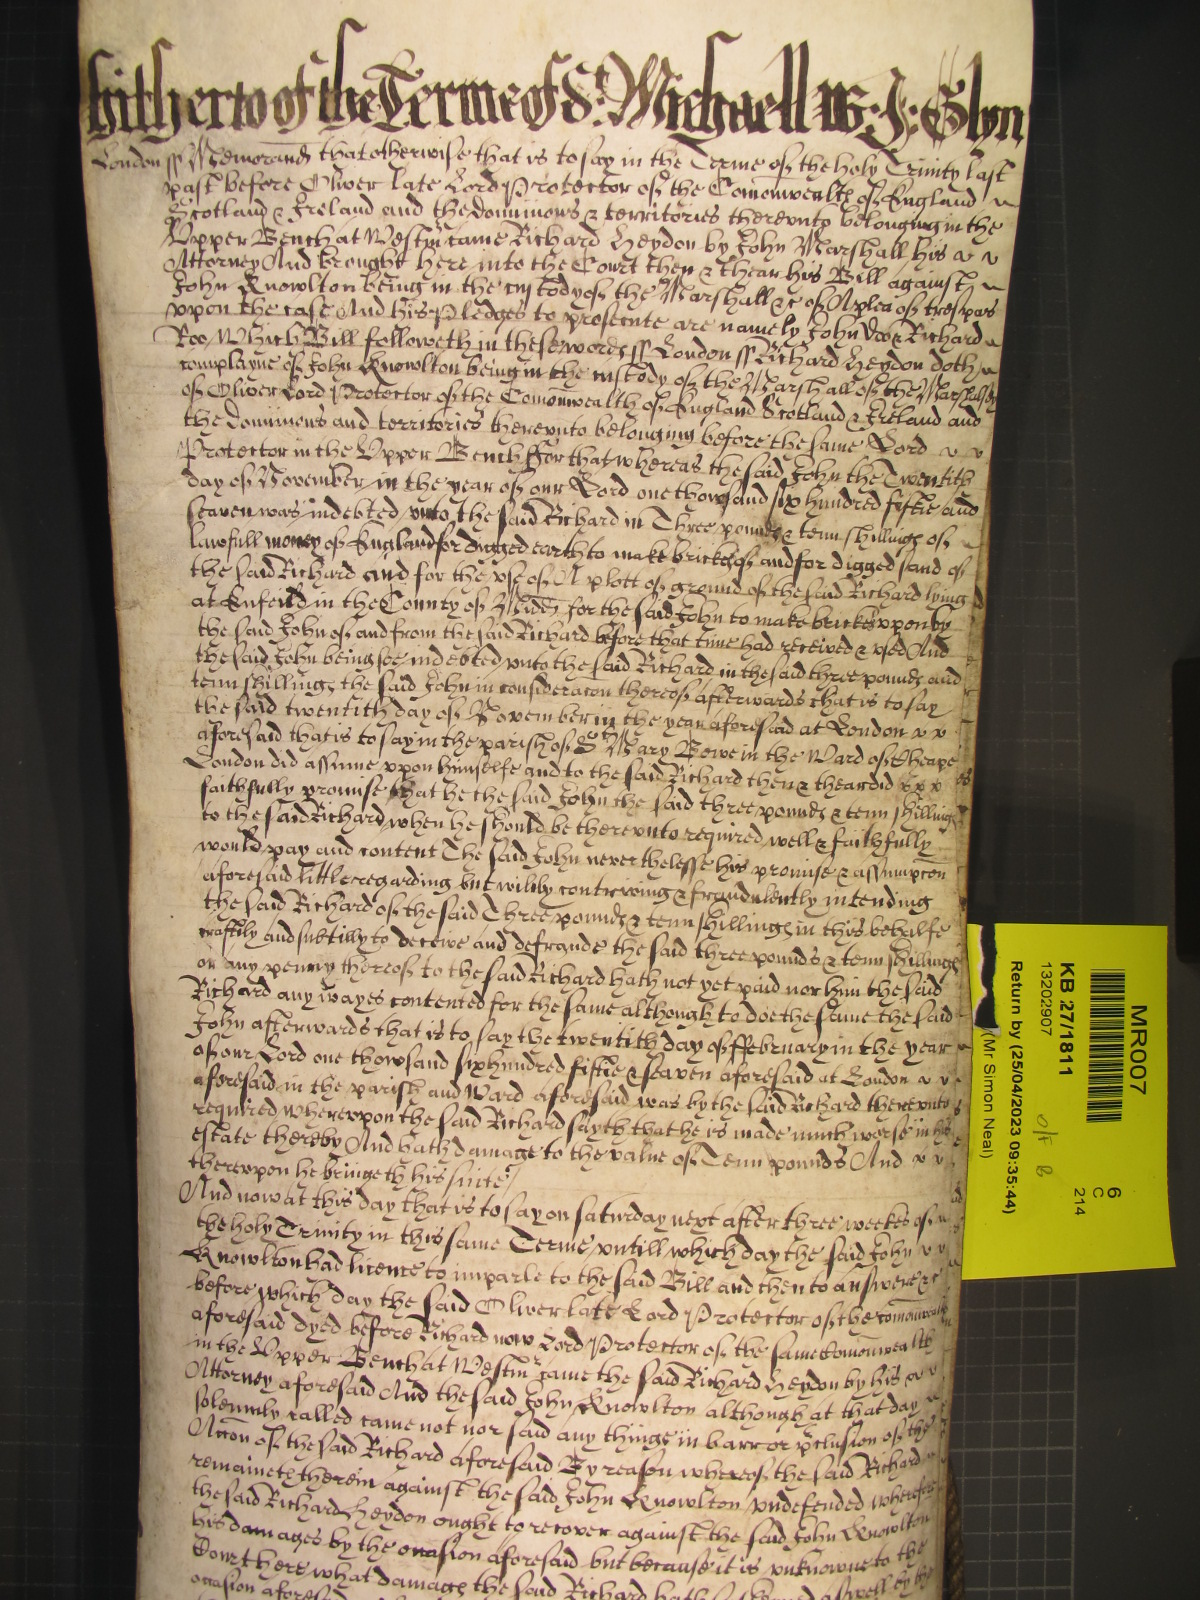 hitherto of the Terme of St. Michaell 1658: J: Glyn
London ss Memorand that otherwise that is to say in the Terme of the holy Trinity last
past before Oliver late Lord Protector of the Comonwealth of England
Scotland & Ireland and the dominions & territories therevnto belonging in the
Vpper Bench at Westm came Richard Heydon by John Marshall his
Attorney And brought here into the Court then & thear his Bill against
John Knowlton being in the custody of the Marshall &c of A plea of trespas
vpon the case And his Pledges to prosecute are namely John Doo & Richard
Roo Which Bill followeth in these words ss London ss Richard Heydon doth
complayne of John Knowlton being in the custody of the Marshall of the Marshalsey
of Oliver Lord Protector of the Comonwealth of England Scotland & Ireland and
the dominions and territories therevnto belonging before the same Lord
Protector in the Vpper Bench ffor that whereas the said John the Twentith
day of November in the year of our Lord one thowsand six hundred fiftie and
seaven was indebted vnto the said Richard in Three pounds & tenn shillings of
lawfull money of England for digged earth to make brickes of and for digged sand of
the said Richard and for the vse of A plott of ground of the said Richard lying
at Enfeild in the County of Midd for the said John to make brickes vpon by
the said John of and from the said Richard before that time had received & vsed And
the said John being soe indebted vnto the said Richard in the said three pounds and
tenn shillings the said John in consideracon thereof afterwards that is to say
the said twentith day of November in the year aforesaid at London
aforesaid that is to say in the parish of St Mary Bowe in the Ward of Cheape
London did assume vpon himselfe and to the said Richard then & thear did
faithfully promise that he the said John the said three pounds & tenn shillings
to the said Richard when he should be therevnto required well & faithfully
would pay and content The said John neverthelesse his promise & assumpcon
aforesaid little regarding but wilily contriving & fraudulently intending
the said Richard of the said Three pounds & tenn shillings in this behalfe
craftily and subtilly to deceive and defraude the said three pounds & tenn shillings
or any penny thereof to the said Richard hath not yet paid nor him the said
Richard any wayes contented for the same although to doe the same the said
John afterwards that is to say the twentith day of ffebruary in the year
of our Lord one thowsand six hundred fiftie & seaven aforesaid at London
aforesaid in the parish and Ward aforesaid was by the said Richard therevnto
required wherevpon the said Richard sayth that he is made much worse in his
estate thereby And hath damage to the value of Tenn pounds And
therevpon he bringeth his suite
And now at this day that is to say on saturday next after three weekes of
the holy Trinity in this same Terme vntill which day the said John
Knowlton had licence to imparle to the said Bill and then to answere &c
before which day the said Oliver late Lord Protector of the comonwealth
aforesaid dyed before Richard now Lord Protector of the same Comonwealth
in the Vpper Bench at Westm came the said Richard Heydon by his
Attorney aforesaid And the said John Knowlton although at that day
solemnly called came not nor said any things in barr or pclusion of the
Accon of the said Richard aforesaid By reason whereof the said Richard
remaineth therein against the said John Knowlton vndefended wherefore
the said Richard Heydon ought to recover against the said John Knowlton
his damages by the occasion aforesaid but because it is vnknowne to the
Court here what damages the said Richard hath susteyned aswell by the
occasion aforesaid
MR007
KB 27/1811
13202907
Return by (25/04/2023 09:35:44)
(Mr Simon Neal)
6
C
214
O/F B